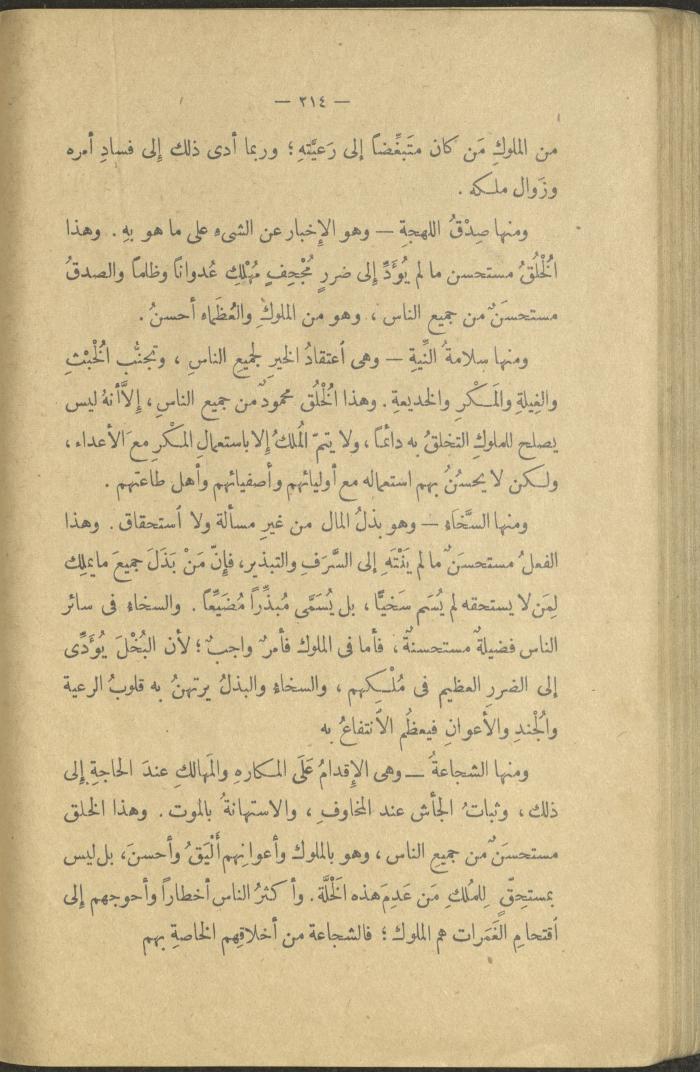 — ٢١٤ —
من الملوكِ مَن كان متَبَغِّضاً إلى رَعِيَّتهِ ؛ وربما أدى ذلك إِلى فسادِ أمره
وزَوال ملـكه .
ومنها صِدْقُ اللهجةِ — وهو الإِخبار عن الشىء على ما هو بهِ . وهذا
الخُلُقُ مستحسن ما لم يُؤَدِّ إِلى ضررٍ مُجْحِفٍ مُهْلِكٍ عُدواناً وظلماً والصدقُ
مستحسَنٌ من جميع الناس ، وهو من الملوكِ والعُظَماء أحسنُ .
ومنها سلامةُ النِّيةِ — وهى اعتقادُ الخيرِ لجميع الناسِ ، وتجنُّب الخُبْثِ
والغِيلةِ والمَـكْرِ والخديعةِ . وهذا الخُلُق محمودٌ من جميع الناسِ ، إِلاَّ أنهُ ليس
يصلح للملوكِ التخلقُ به دائماً ، ولا يتمّ المُلكُ إِلا باستعمالِ المـكْرِ معَ الأعداء ،
ولـكن لا يحسُنُ بهم استعماله مع أوليائهم وأصفيائهم وأهل طاعتهم .
ومنها السَّخَاءِ — وهو بذلُ المال من غيرِ مسألة ولا استحقاق . وهذا
الفعلُ مستحسَنٌ ما لم يَنْتَهِ إلى السَّرَفِ والتبذير، فإِنّ مَنْ بَذَلَ جميعَ مايملِك
لِمَن لا يستحقه لم يُسَم سَخيًّا ، بل يُسَمَّى مُبذِّراً مُضَيِّعاً . والسخاء فى سائر
الناس فضيلةٌ مستحسنةٌ ، فأما فى الملوك فأمرٌ واجبٌ ؛ لأن البُخْلَ يُؤَدِّى
إلى الضررِ العظيم فى مُلْـكِهم ، والسخاء والبذلُ يرتهنُ به قلوبُ الرعية
والجُندِ والأعوانِ فيعظُم الانتفاعُ به
ومنها الشجاعةُ — وهى الإِقدامُ عَلَى المـكارهِ والمَهالكِ عندَ الحاجةِ إِلى
ذلك ، وثباتُ الجأش عند المخاوفِ ، والاستهانةُ بالموت . وهذا الخلق
مستحسَنٌ من جميع الناس ، وهو بالملوك وأعوانِهم أَلْيَقُ وأحسنَ، بل ليس
بمستحِقٍّ لِلمُلكِ مَن عَدِمَ هذه الخَلَّة . وأكثرُ الناس أخطاراً وأحوجهم إِلى
اقتحامِ الغَمَرات هم الملوك ؛ فالشجاعة من أخلاقِهم الخاصةِ بهم